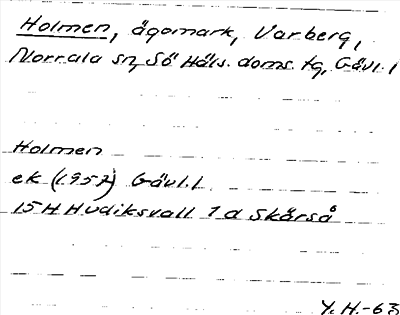 Holmen, ägomark, Varberg,
Norrala sn, Sö Häls. doms. tg, Gävl. l
Holmen
ek (1957) Gävl. l
15H Hudiksvall 1 d Skärså
Y. H. -63